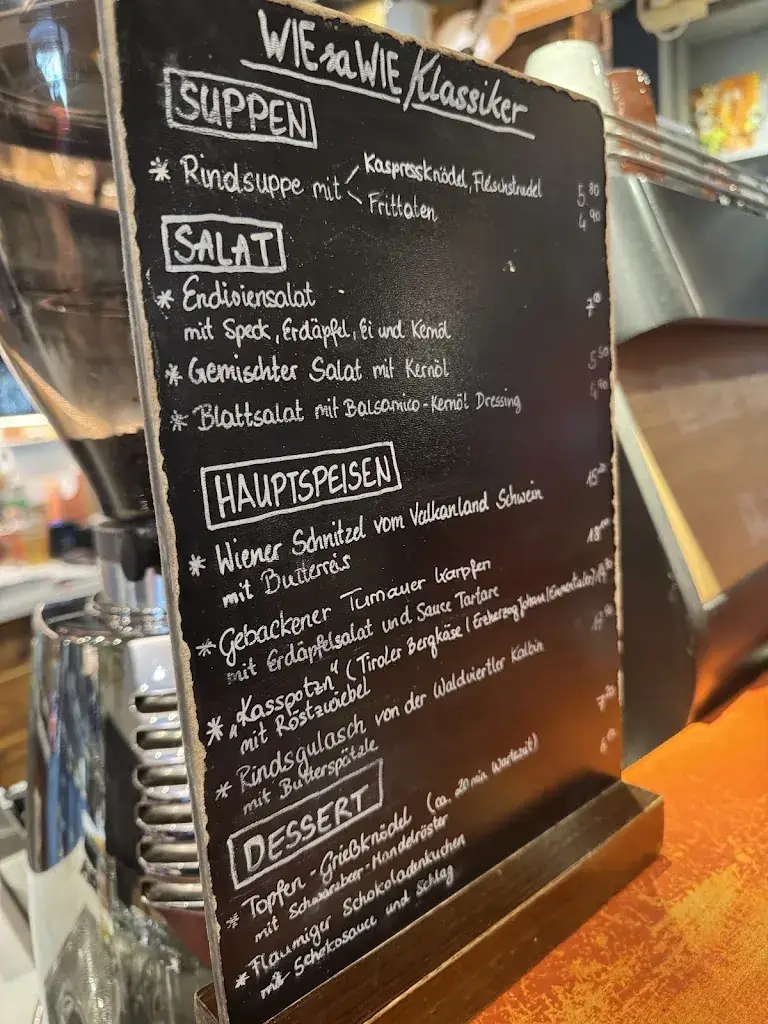 WIEraWIE/Klassiker
SUPPEN
* Rindsuppe mit < Kaspressknödel, Fleischstrudel 5.80
Frittaten 4.90
SALAT
* Endiviensalat 7.00
mit Speck, Erdäpfel, Ei und Kernöl
* Gemischter Salat mit Kernöl 5.50
* Blattsalat mit Balsamico-Kernöl Dressing 4.90
HAUPTSPEISEN
* Wiener Schnitzel vom Vulkanland Schwein 15.20
mit Butterreis
* Gebackener Turnauer Karpfen 18.00
mit Erdäpfelsalat und Sauce Tartare
* "Kasspotzn" (Tiroler Bergkäse / Erzherzog Johann / Emmentaler)
mit Röstzwiebel
* Rindsgulasch von der Waldviertler Kalbin
mit Butterspätzle
DESSERT
* Topfen-Grießknödel (ca. 20 min Wartezeit)
mit Schwarzbeer-Mandelröster
* Flaumiger Schokoladenkuchen
mit Schokosauce und Schlag